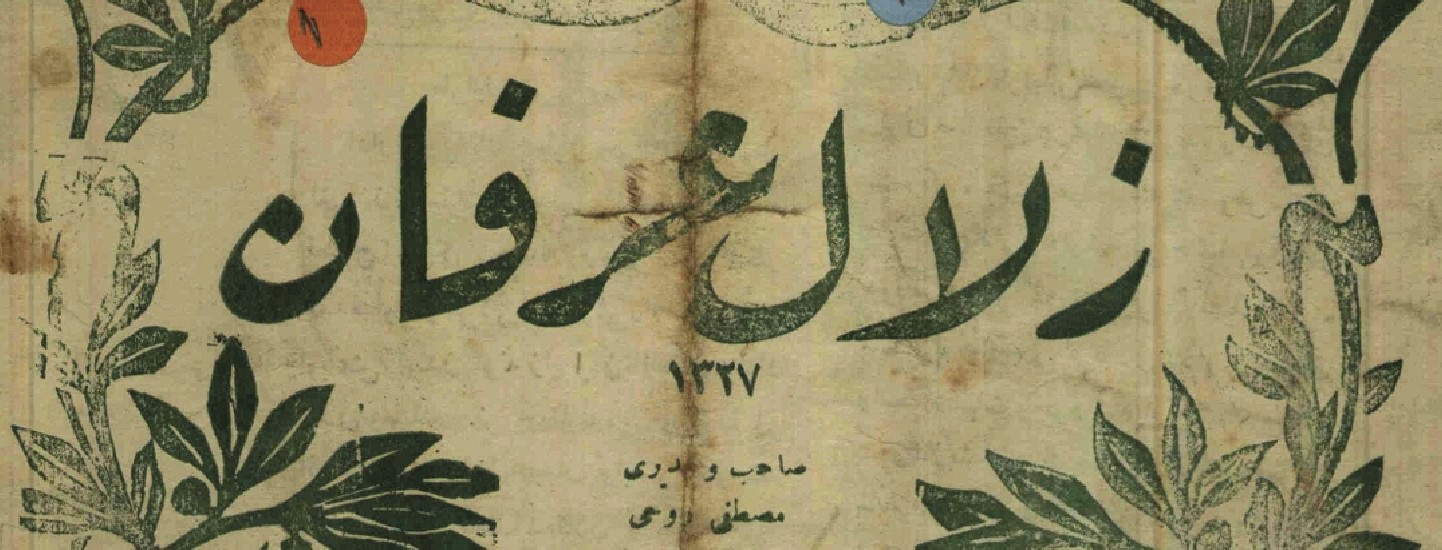 زلال عرفان
١٣٢٧
صاحب و مديرى
مصطفى روحى